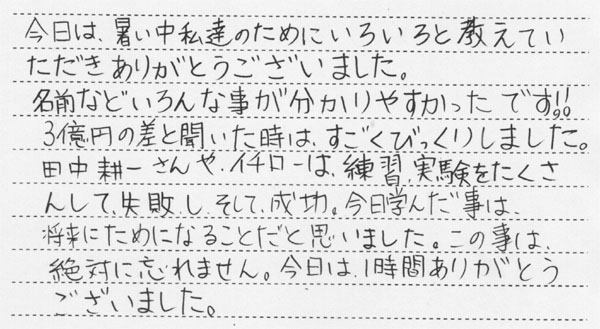 今日は、暑い中私達のためにいろいろと教えてい
ただきありがとうございました。
名前などいろんな事が分かりやすかったです!!
3億円の差と聞いた時は、すごくびっくりしました。
田中耕一さんや、イチローは、練習、実験をたくさ
んして、失敗し、そして、成功。今日学んだ事は、
将来にためになることだと思いました。この事は、
絶対に忘れません。今日は、1時間ありがとう
ございました。